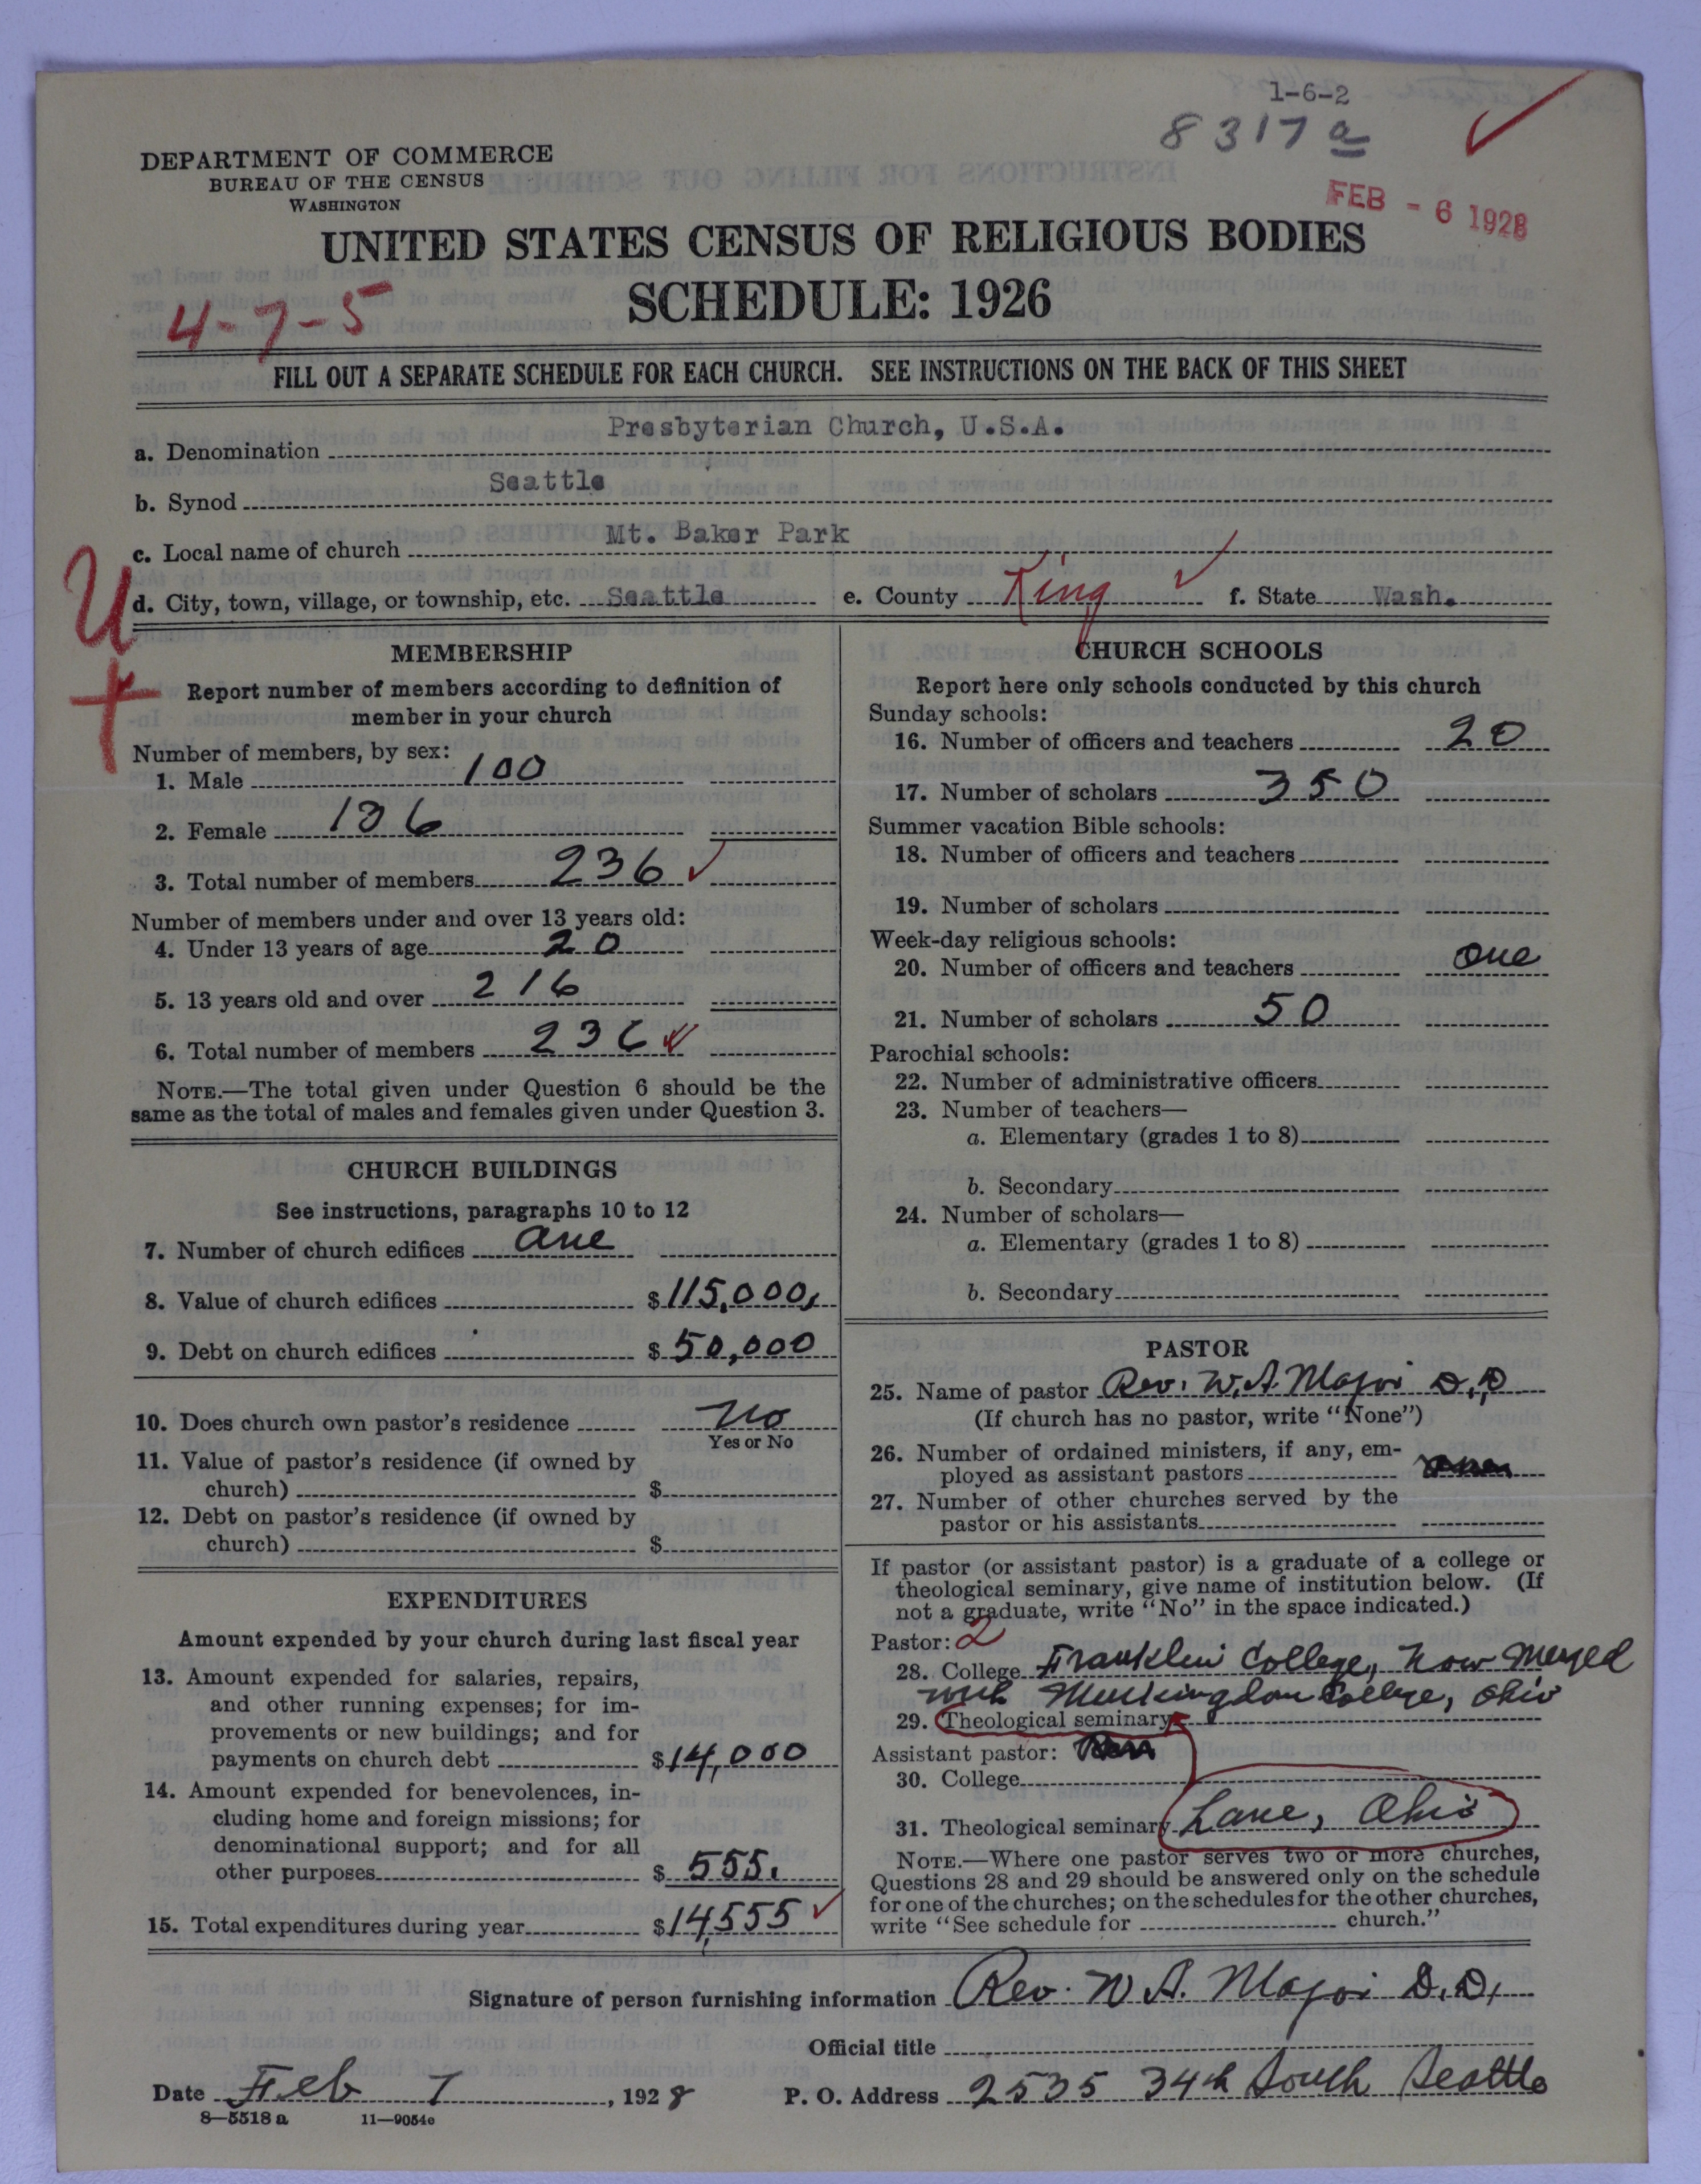 1-6-2
8317a
FEB - 6 1928
DEPARTMENT OF COMMERCE
BUREAU OF THE CENSUS
WASHINGTON
UNITED STATES CENSUS OF RELIGIOUS BODIES
SCHEDULE: 1926
4-7-5
FILL OUT A SEPARATE SCHEDULE FOR EACH CHURCH. SEE INSTRUCTIONS ON THE BACK OF THIS SHEET
a. Denomination Presbyterian Church, U.S.A.
b. Synod Seattle
c. Local name of church Mt. Baker Park
U
d. City, town, village, or township, etc. Seattle e. County King f. State Wash.
MEMBERSHIP
Report number of members according to definition of
member in your church
Number of members, by sex:
1. Male 100
2. Female 136
3. Total number of members 236
Number of members under and over 13 years old:
4. Under 13 years of age 20
5. 13 years old and over 216
6. Total number of members 236
NOTE.—The total given under Question 6 should be the
same as the total of males and females given under Question 3.
CHURCH BUILDINGS
See instructions, paragraphs 10 to 12
7. Number of church edifices one
8. Value of church edifices $115,000,
9. Debt on church edifices $50,000
10. Does church own pastor's residence No
Yes or No
11. Value of pastor's residence (if owned by
church) $
12. Debt on pastor's residence (if owned by
church) $
EXPENDITURES
Amount expended by your church during last fiscal year
13. Amount expended for salaries, repairs,
and other running expenses; for im-
provements or new buildings; and for
payments on church debt $14,000
14. Amount expended for benevolences, in-
cluding home and foreign missions; for
denominational support; and for all
other purposes $555.
15. Total expenditures during year $14,555
CHURCH SCHOOLS
Report here only schools conducted by this church
Sunday schools:
16. Number of officers and teachers 20
17. Number of scholars 350
Summer vacation Bible schools:
18. Number of officers and teachers
19. Number of scholars
Week-day religious schools:
20. Number of officers and teachers one
21. Number of scholars 50
Parochial schools:
22. Number of administrative officers
23. Number of teachers—
a. Elementary (grades 1 to 8)
b. Secondary
24. Number of scholars—
a. Elementary (grades 1 to 8)
b. Secondary
PASTOR
25. Name of pastor Rev. W. A. Major D.D
(If church has no pastor, write "None")
26. Number of ordained ministers, if any, em-
ployed as assistant pastors
27. Number of other churches served by the
pastor or his assistants
If pastor (or assistant pastor) is a graduate of a college or
theological seminary, give name of institution below. (If
not a graduate, write "No" in the space indicated.)
Pastor: 2
28. College Franklin College, now merged
with Muskingdon College, Ohio
29. Theological seminary
Assistant pastor:
30. College
31. Theological seminary Lane, Ohio
NOTE.—Where one pastor serves two or more churches,
Questions 28 and 29 should be answered only on the schedule
for one of the churches; on the schedules for the other churches,
write "See schedule for church."
Signature of person furnishing information Rev. W. A. Major D.D,
Official title
Date Feb 7, 1928 P. O. Address 2535 34th South Seattle
8—5518 a 11—9054e